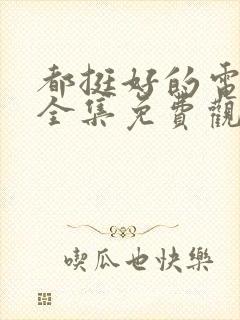 都挺好的電
全集免費觀
喫瓜也快樂